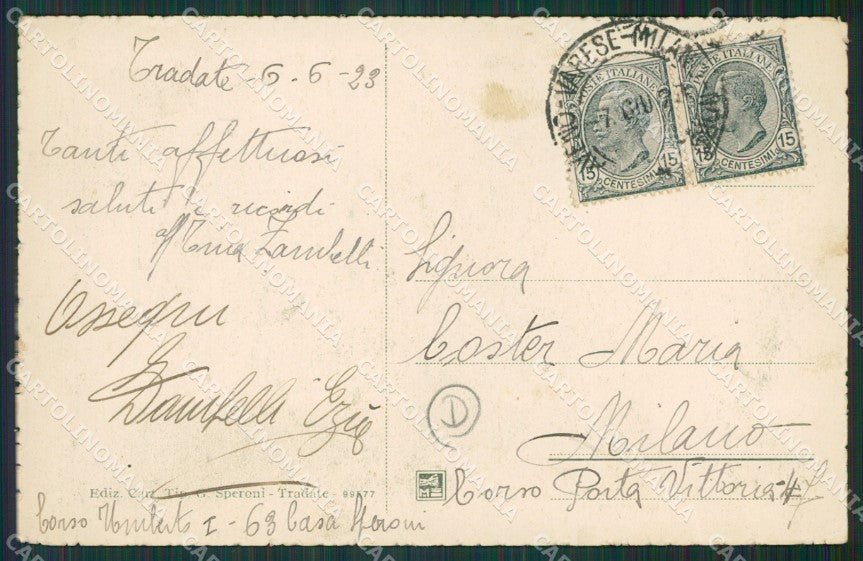 Tradate 6-6-23
Tanti affettuosi
saluti e ricordi
Zambelli
Ossequi
Zambelli Ezio
Ediz. Cart. Tip. G. Speroni - Tradate 99577
Corso Umberto I - 63 Casa Speroni
VARESE-(MILANO)
7 GIU
POSTE ITALIANE
15 15
CENTESIMI
POSTE ITALIANE
15 15
CENTESIMI
Signora
Coster Maria
Milano
Corso Porta Vittoria 4
D
CARTOLINOMANIA